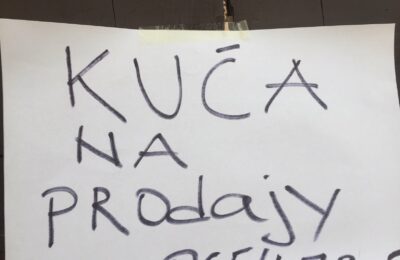 KUĆA
NA
PRODAJY